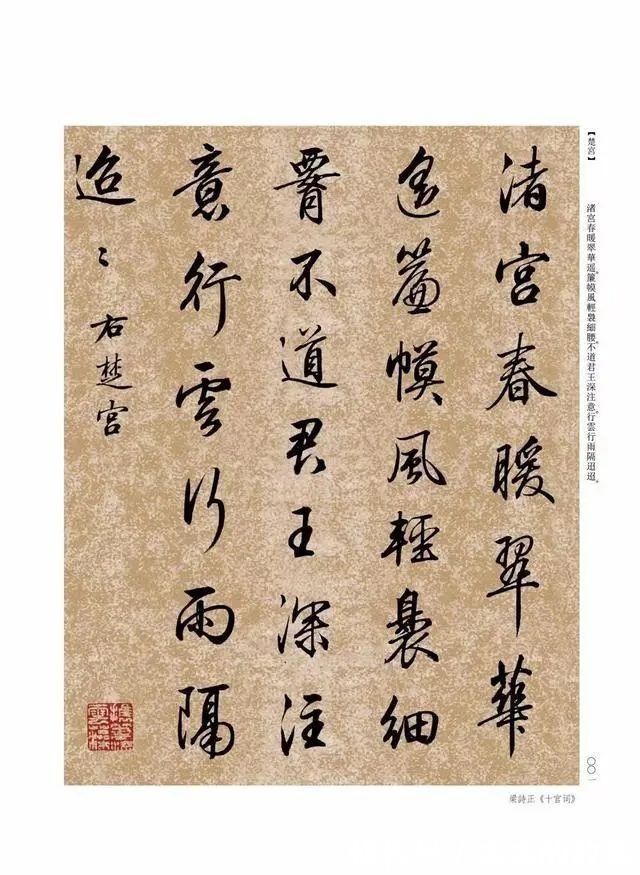 【楚宮】
渚宮春暖翠華遥。簾幙風輕裊細腰。不道君王深注意。行雲行雨隔迢迢。
渚宮春暖翠華
遥簾幙風輕裊細
腰不道君王深注
意行雲行雨隔
迢〻 右楚宮
〇〇一
梁詩正《十官词》